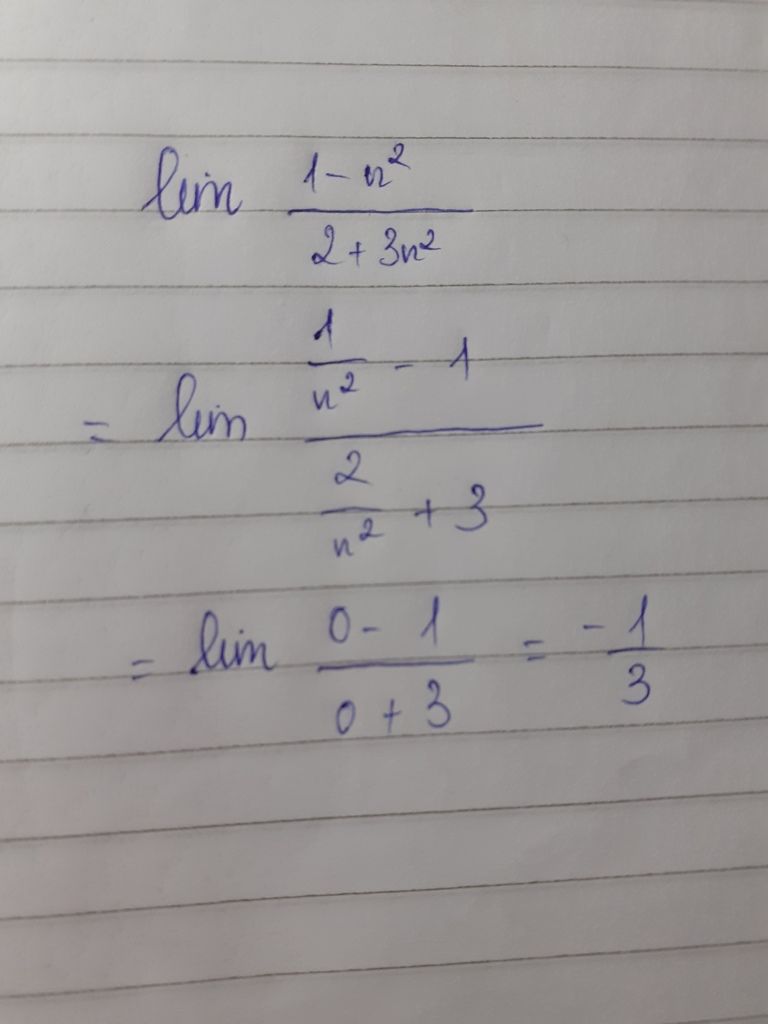 lim (1 - n²)/(2 + 3n²)
= lim (1/n² - 1)/(2/n² + 3)
= lim (0 - 1)/(0 + 3) = -1/3